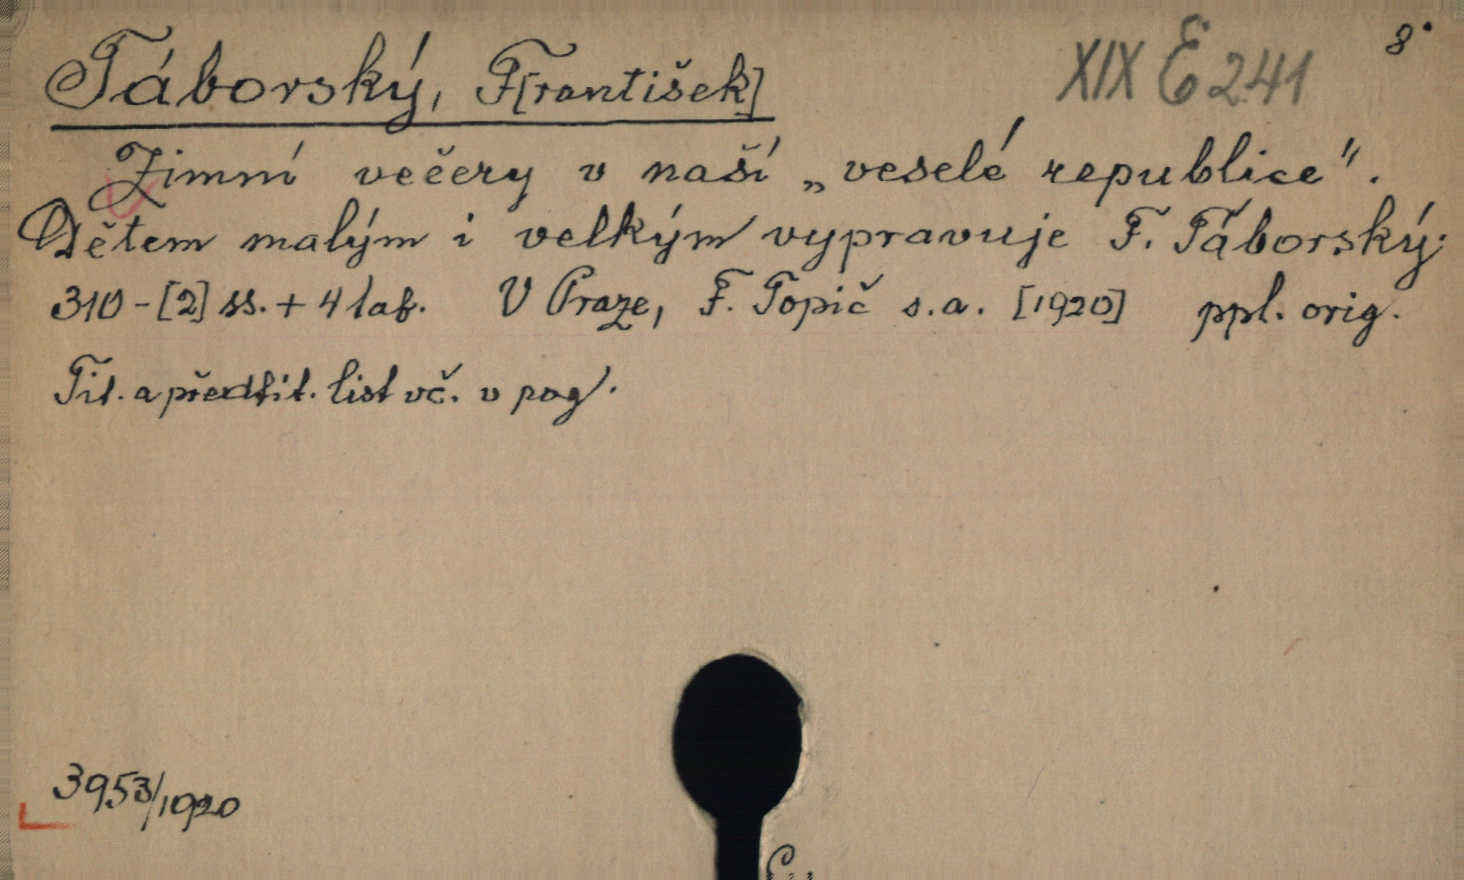 8°
XIX E 241
Táborský, F[rantišek]
Zimní večery v naší „veselé republice".
Dětem malým i velkým vypravuje F. Táborský.
310-[2] ss. + 4 tab. V Praze, F. Topič s.a. [1920] ppl. orig.
Tit. a předtit. list vč. v pag.
3953/1920